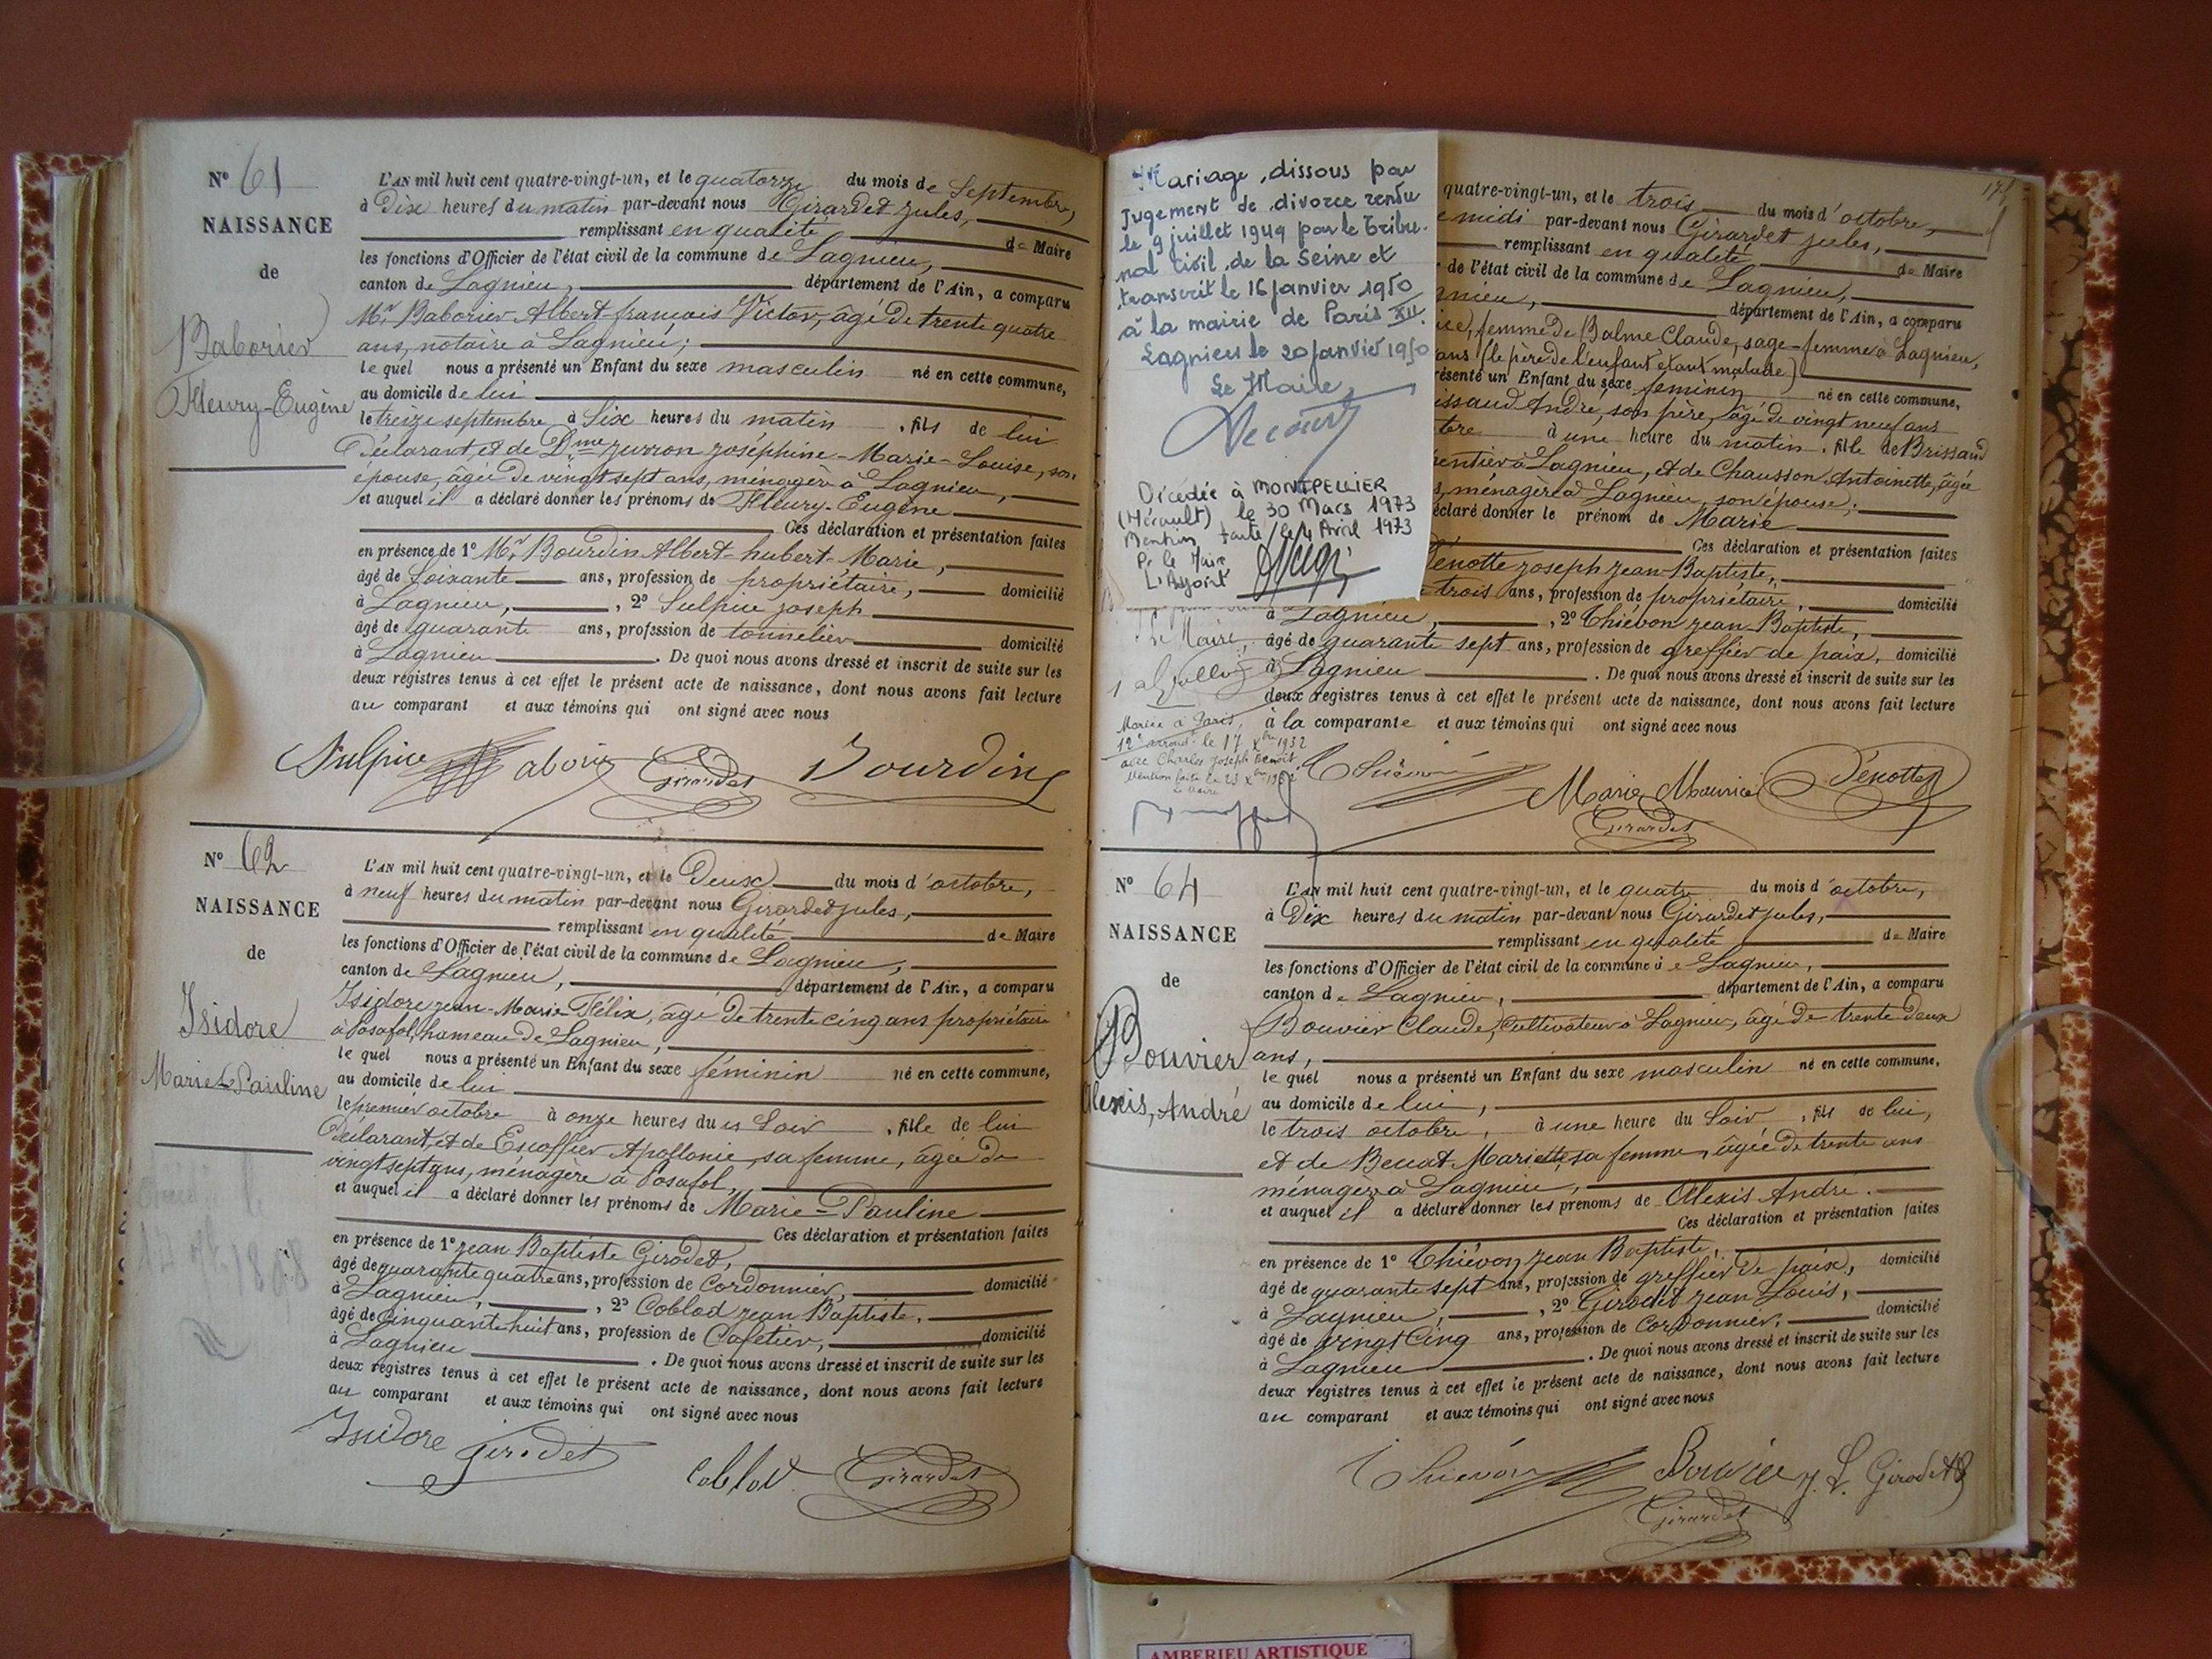 N° 61
NAISSANCE
de
Baborier
Fleury-Eugène
L'AN mil huit cent quatre-vingt-un, et le quatorze du mois de Septembre,
à Dix heures du matin par-devant nous Girardet jules,
remplissant en qualité de Maire
les fonctions d'Officier de l'état civil de la commune de Lagnieu,
canton de Lagnieu, département de l'Ain, a comparu
Mr Baborier Albert-françois Victor, âgé de trente quatre
ans, notaire à Lagnieu;
le quel nous a présenté un Enfant du sexe masculin né en cette commune,
au domicile de lui
le treize septembre à Six heures du matin, fils de lui
Déclarant, et de Dme Jurron joséphine-Marie-Louise, son
épouse, âgée de vingt sept ans, ménagère à Lagnieu,
et auquel il a déclaré donner les prénoms de Fleury-Eugène
Ces déclaration et présentation faites
en présence de 1° Mr Bourdin Albert-hubert-Marie,
âgé de Soixante ans, profession de propriétaire, domicilié
à Lagnieu, , 2° Sulpice joseph
âgé de quarante ans, profession de tonnelier domicilié
à Lagnieu . De quoi nous avons dressé et inscrit de suite sur les
deux registres tenus à cet effet le présent acte de naissance, dont nous avons fait lecture
au comparant et aux témoins qui ont signé avec nous
Sulpice Baborier Girardet Bourdin
N° 62
NAISSANCE
de
Isidore
Marie-Pauline
L'AN mil huit cent quatre-vingt-un, et le Deux du mois d'octobre,
à neuf heures du matin par-devant nous Girardet jules,
remplissant en qualité de Maire
les fonctions d'Officier de l'état civil de la commune de Lagnieu,
canton de Lagnieu, département de l'Ain, a comparu
Isidore jean-Marie Félix, âgé de trente cinq ans propriétaire
à Posafol, hameau de Lagnieu,
le quel nous a présenté un Enfant du sexe féminin né en cette commune,
au domicile de lui
le premier octobre à onze heures du Soir, fille de lui
Déclarant, et de Escoffier Apollonie, sa femme, âgée de
vingt sept ans, ménagère à Posafol,
et auquel il a déclaré donner les prénoms de Marie-Pauline
Ces déclaration et présentation faites
en présence de 1° jean Baptiste Girodet,
âgé de quarante quatre ans, profession de Cordonnier, domicilié
à Lagnieu, , 2° Coblod jean Baptiste,
âgé de Cinquante huit ans, profession de Cafetier, domicilié
à Lagnieu . De quoi nous avons dressé et inscrit de suite sur les
deux registres tenus à cet effet le présent acte de naissance, dont nous avons fait lecture
au comparant et aux témoins qui ont signé avec nous
Isidore Girodet Coblod Girardet
Mariage dissous par
jugement de divorce rendu
le 9 juillet 1949 par le Tribu-
nal Civil de la Seine et
transcrit le 16 janvier 1950
à la mairie de Paris XII.
Lagnieu le 20 janvier 1950
Le Maire,
Décédée à MONTPELLIER
(Hérault) le 30 Mars 1973
Mention faite le 4 Avril 1973
Pr le Maire
L'Adjoint
Le Maire,
Mariée à Paris,
12e arrondt le 17 Xbre 1932
avec Charles Joseph Benoit
Mention faite le 23 Xbre 1932
Le Maire
175
quatre-vingt-un, et le trois du mois d'octobre,
midi par-devant nous Girardet jules,
remplissant en qualité de Maire
de l'état civil de la commune de Lagnieu,
département de l'Ain, a comparu
femme de Balme Claude, sage-femme à Lagnieu,
ans (le père de l'enfant étant malade)
un Enfant du sexe féminin né en cette commune,
André, son père, âgé de vingt neuf ans
à une heure du matin, fille de Brissaud
à Lagnieu, et de Chausson Antoinette, âgée
ménagère à Lagnieu, son épouse;
donner le prénom de Marie
Ces déclaration et présentation faites
Dénotte joseph jean-Baptiste,
trois ans, profession de propriétaire, domicilié
à Lagnieu, , 2° Thiévon jean-Baptiste,
âgé de quarante sept ans, profession de greffier de paix, domicilié
à Lagnieu . De quoi nous avons dressé et inscrit de suite sur les
deux registres tenus à cet effet le présent acte de naissance, dont nous avons fait lecture
à la comparante et aux témoins qui ont signé avec nous
Thiévon Marie Maurice Dénotte
Girardet
N° 64
NAISSANCE
de
Bouvier
Alexis, André
L'AN mil huit cent quatre-vingt-un, et le quatre du mois d'octobre,
à Dix heures du matin par-devant nous Girardet jules,
remplissant en qualité de Maire
les fonctions d'Officier de l'état civil de la commune de Lagnieu,
canton de Lagnieu, département de l'Ain, a comparu
Bouvier Claude, Cultivateur à Lagnieu, âgé de trente deux
ans,
le quel nous a présenté un Enfant du sexe masculin né en cette commune,
au domicile de lui,
le trois octobre, à une heure du Soir, fils de lui,
et de Benat Mariette, sa femme, âgée de trente ans
ménagère à Lagnieu,
et auquel il a déclaré donner les prénoms de Alexis André.
Ces déclaration et présentation faites
en présence de 1° Thiévon jean Baptiste, domicilié
âgé de quarante sept ans, profession de greffier de paix,
à Lagnieu, , 2° Girodet jean Louis, domicilié
âgé de vingt Cinq ans, profession de Cordonnier,
à Lagnieu . De quoi nous avons dressé et inscrit de suite sur les
deux registres tenus à cet effet le présent acte de naissance, dont nous avons fait lecture
au comparant et aux témoins qui ont signé avec nous
Thiévon Bouvier J. L. Girodet
Girardet
AMBERIEU ARTISTIQUE